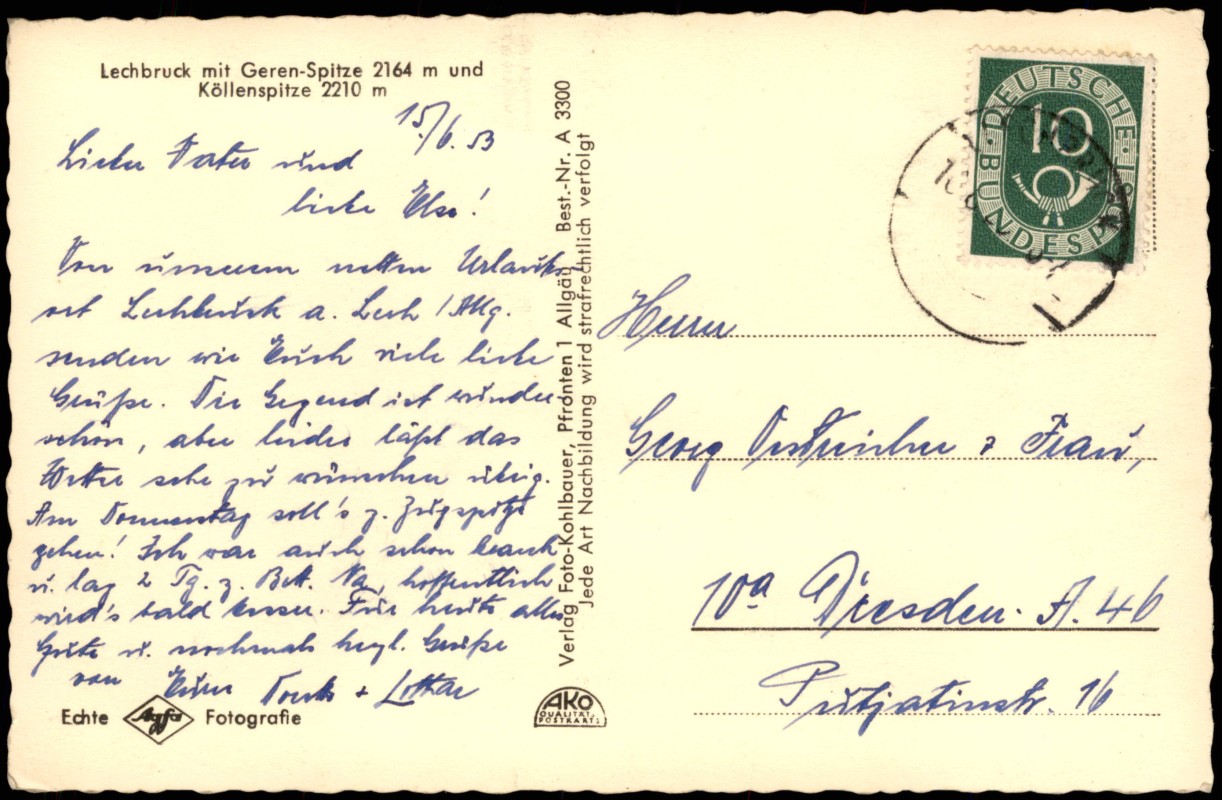 Lechbruck mit Geren-Spitze 2164 m und
Köllenspitze 2210 m
15./6. 53
Lieber Vater und
liebe Else!
Von unserem netten Urlaubs-
ort Lechbruck a. Lech / Allg.
senden wir Euch viele liebe
Grüße. Die Gegend ist wunder-
schön, aber leider läßt das
Wetter sehr zu wünschen übrig.
Am Donnerstag soll's z. Zugspitze
gehen! Ich war auch schon krank
u. lag 2 Tg. z. Bett. Na, hoffentlich
wird's bald besser. Für heute alles
Gute u. nochmals hrzl. Grüße
von Euren + Lothar
Echte Agfa Fotografie
Verlag Foto-Kohlbauer, Pfronten 1 Allgäu Best.-Nr. A 3300
Jede Art Nachbildung wird strafrechtlich verfolgt
AKO
QUALITÄTS
POSTKARTE
DEUTSCHE
10
BUNDESPOST
Herrn
Georg Oestreicher & Frau,
10a Dresden. A. 46
Putjatinstr. 16